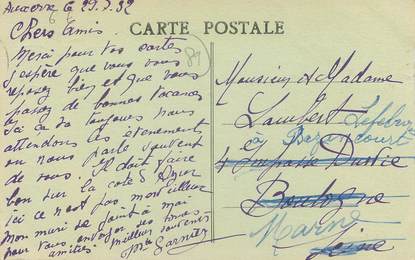 Auxerre le 29.7.32
Chers Amis.
Merci pour vos cartes
j'espère que vous vous
reposez bien et que vous
passez de bonnes vacances
ici ça va toujours nous
attendons les évènements
on nous parle souvent
de vous. Il doit faire
bon sur la cote d'Azur
ici ce n'est pas merveilleux
Mon mari se joint à moi
pour vous envoyer nos bonnes
amitiés meilleur souvenirs
Mme Garnier
81
CARTE POSTALE
Monsieur et Madame
Lambert Lefebvre
à Bazancourt
4 Impasse
Boulogne
Marne
Seine